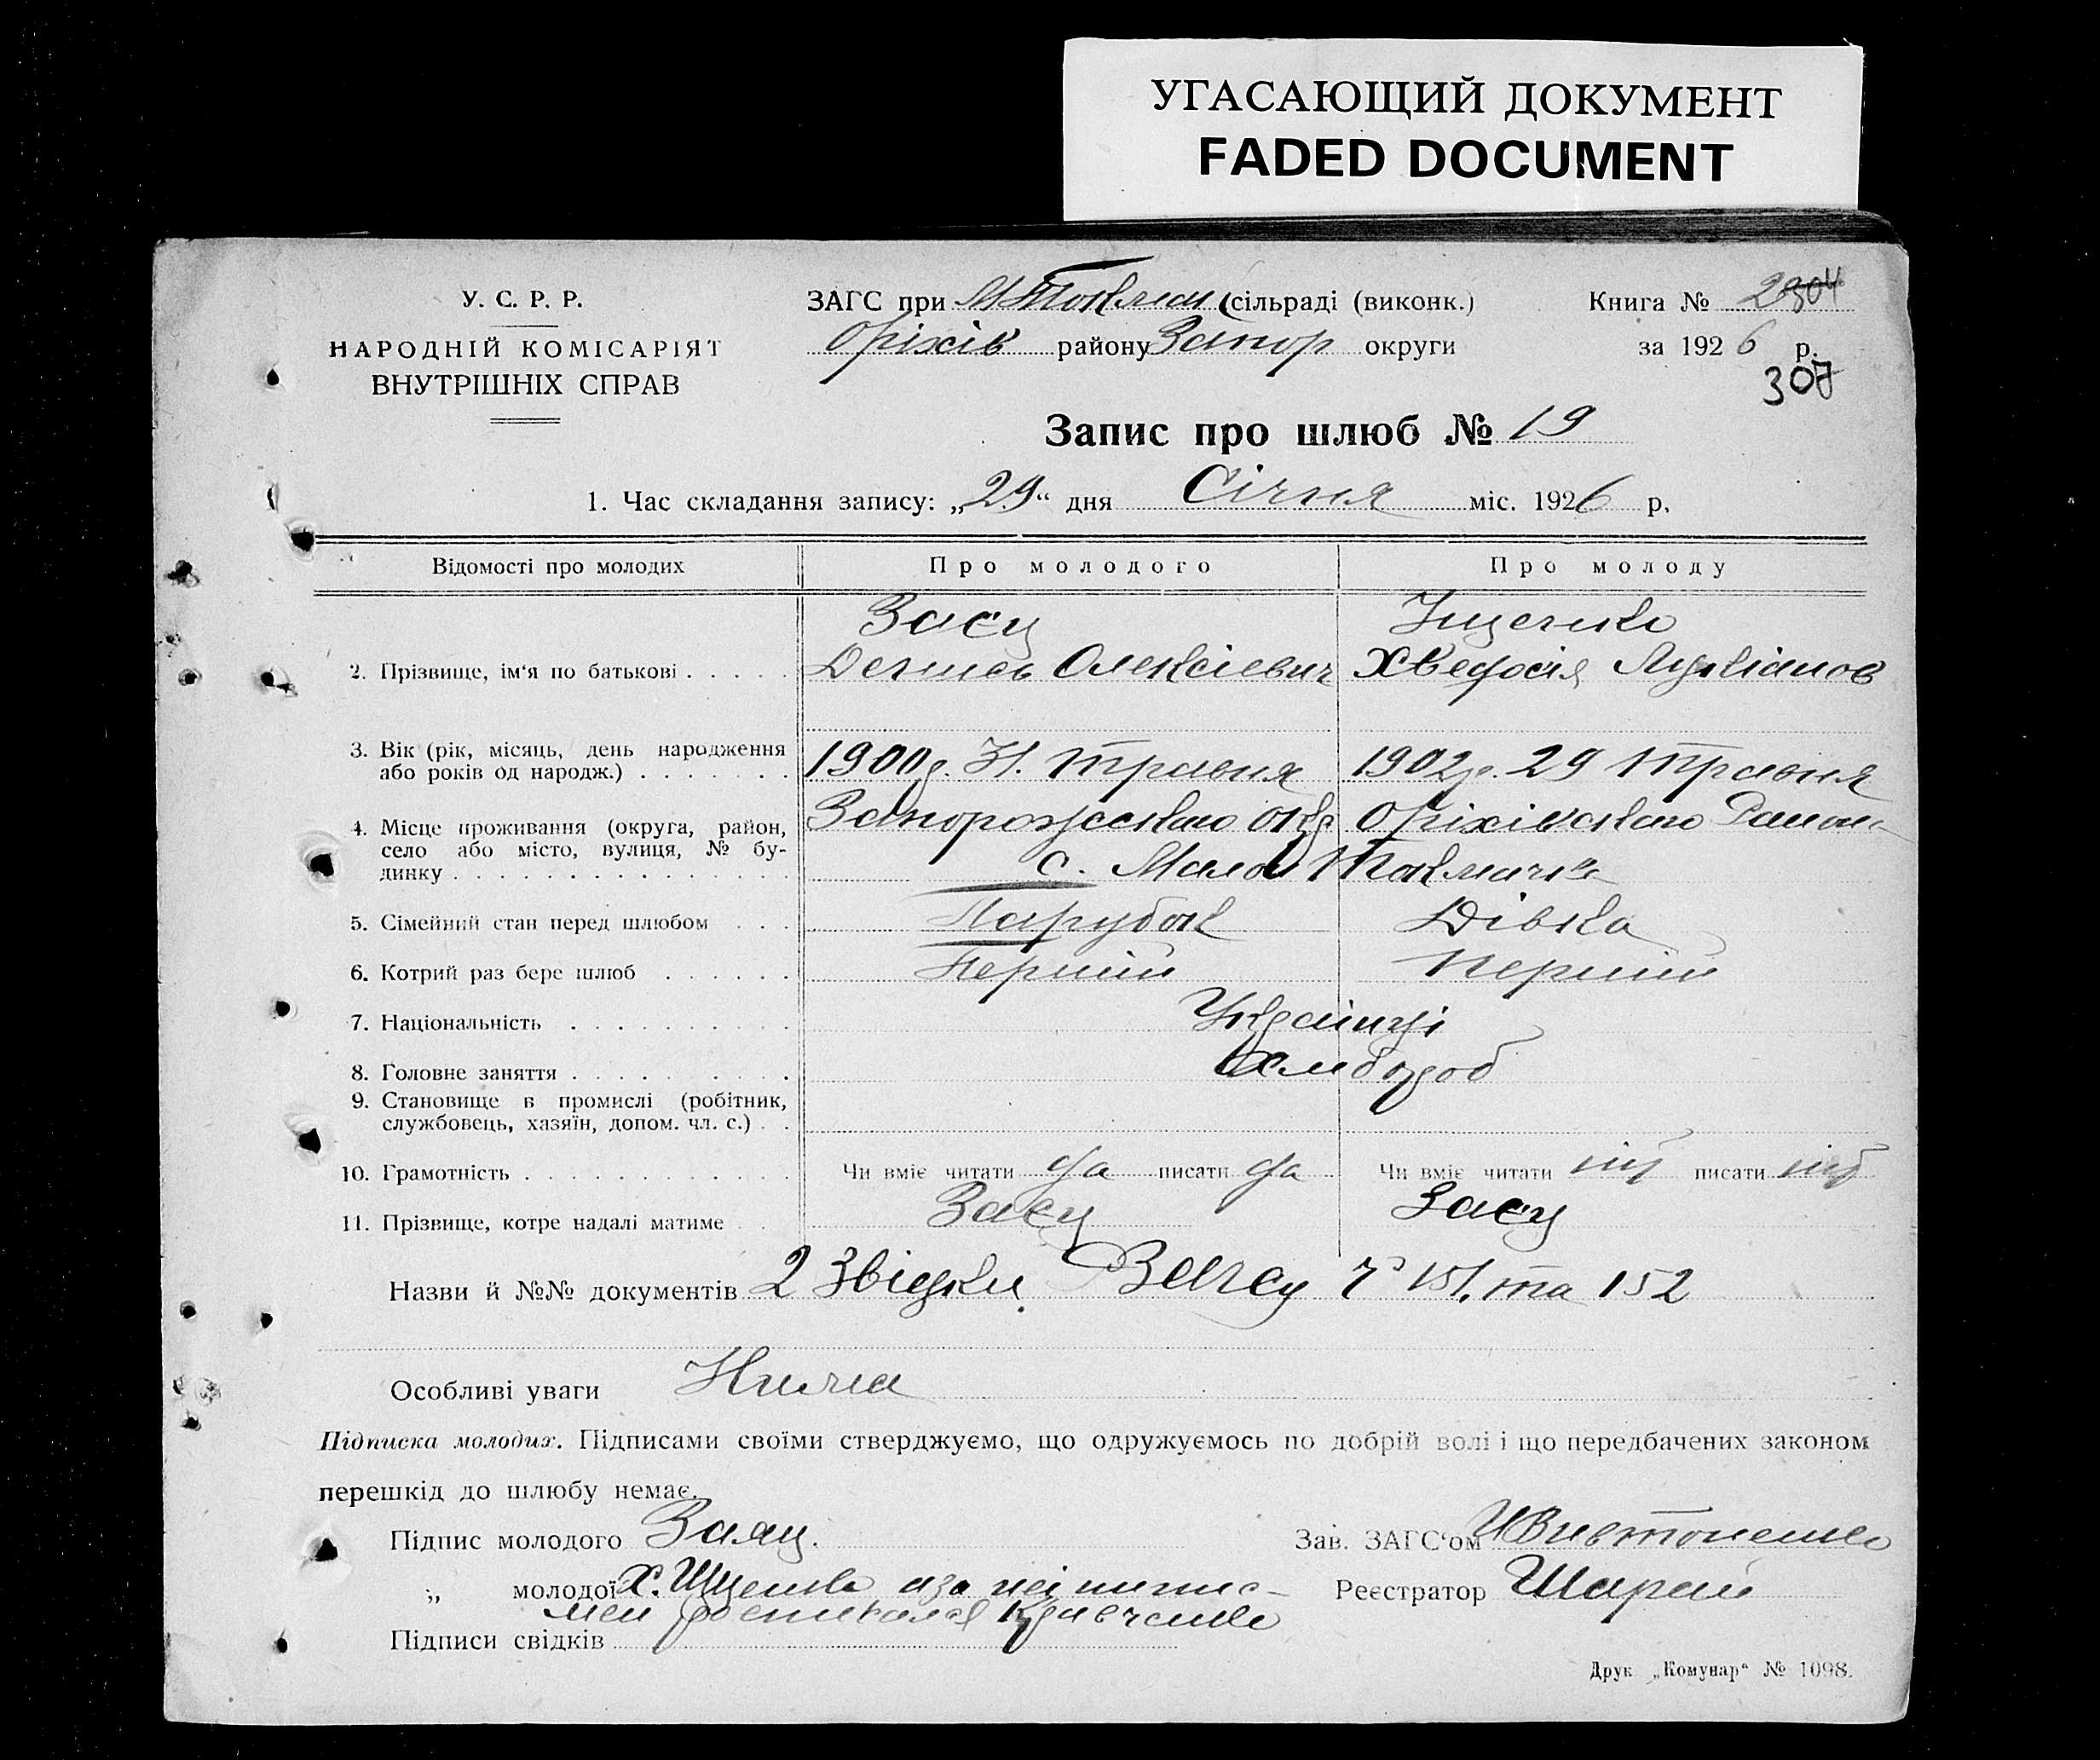 УГАСАЮЩИЙ ДОКУМЕНТ
FADED DOCUMENT
У. С. Р. Р.
НАРОДНІЙ КОМІСАРІЯТ
ВНУТРІШНІХ СПРАВ
ЗАГС при М Токмац (сільраді (виконк.)
Оріхів району Запор округи
Книга № 2304
за 1926 р.
307
Запис про шлюб № 19
1. Час складання запису: „29“ дня Січня міс. 1926 р.
Відомості про молодих Про молодого Про молоду
Заєц Іщенко
2. Прізвище, ім'я по батькові . . . . . Денись Олексіевич Хведосія Лукіанов
3. Вік (рік, місяць, день народження
або років од народж.) . . . . . . . 1900р. Травня 1902р. 29 Травня
4. Місце проживання (округа, район,
село або місто, вулиця, № бу-
динку . . . . . . . . . . . . . . . Запорожського окр Оріхівського Район
с. Малой Токмачк
5. Сімейний стан перед шлюбом . . . Парубок Дівка
6. Котрий раз бере шлюб . . . . . . Перший Перший
7. Національність . . . . . . . . . . Українці
8. Головне заняття . . . . . . . . . . Хлібороб
9. Становище в промислі (робітник,
службовець, хазяїн, допом. чл. с.) . .
10. Грамотність . . . . . . . . . . . . Чи вміє читати да писати да Чи вміє читати ні писати ні
11. Прізвище, котре надалі матиме . . Заєц Заєц
Назви й №№ документів 2 Звідки Загсу 151. та 152
Особливі уваги Нима
Підписка молодих. Підписами своїми стверджуємо, що одружуємось по добрій волі і що передбачених законом
перешкід до шлюбу немає.
Підпис молодого Заяц. Зав. ЗАГС'ом
„ молодої Х. Іщенко а за неі Реєстратор Шарай
росписался Кравченко
Підписи свідків
Друк „Комунар“ № 1098.